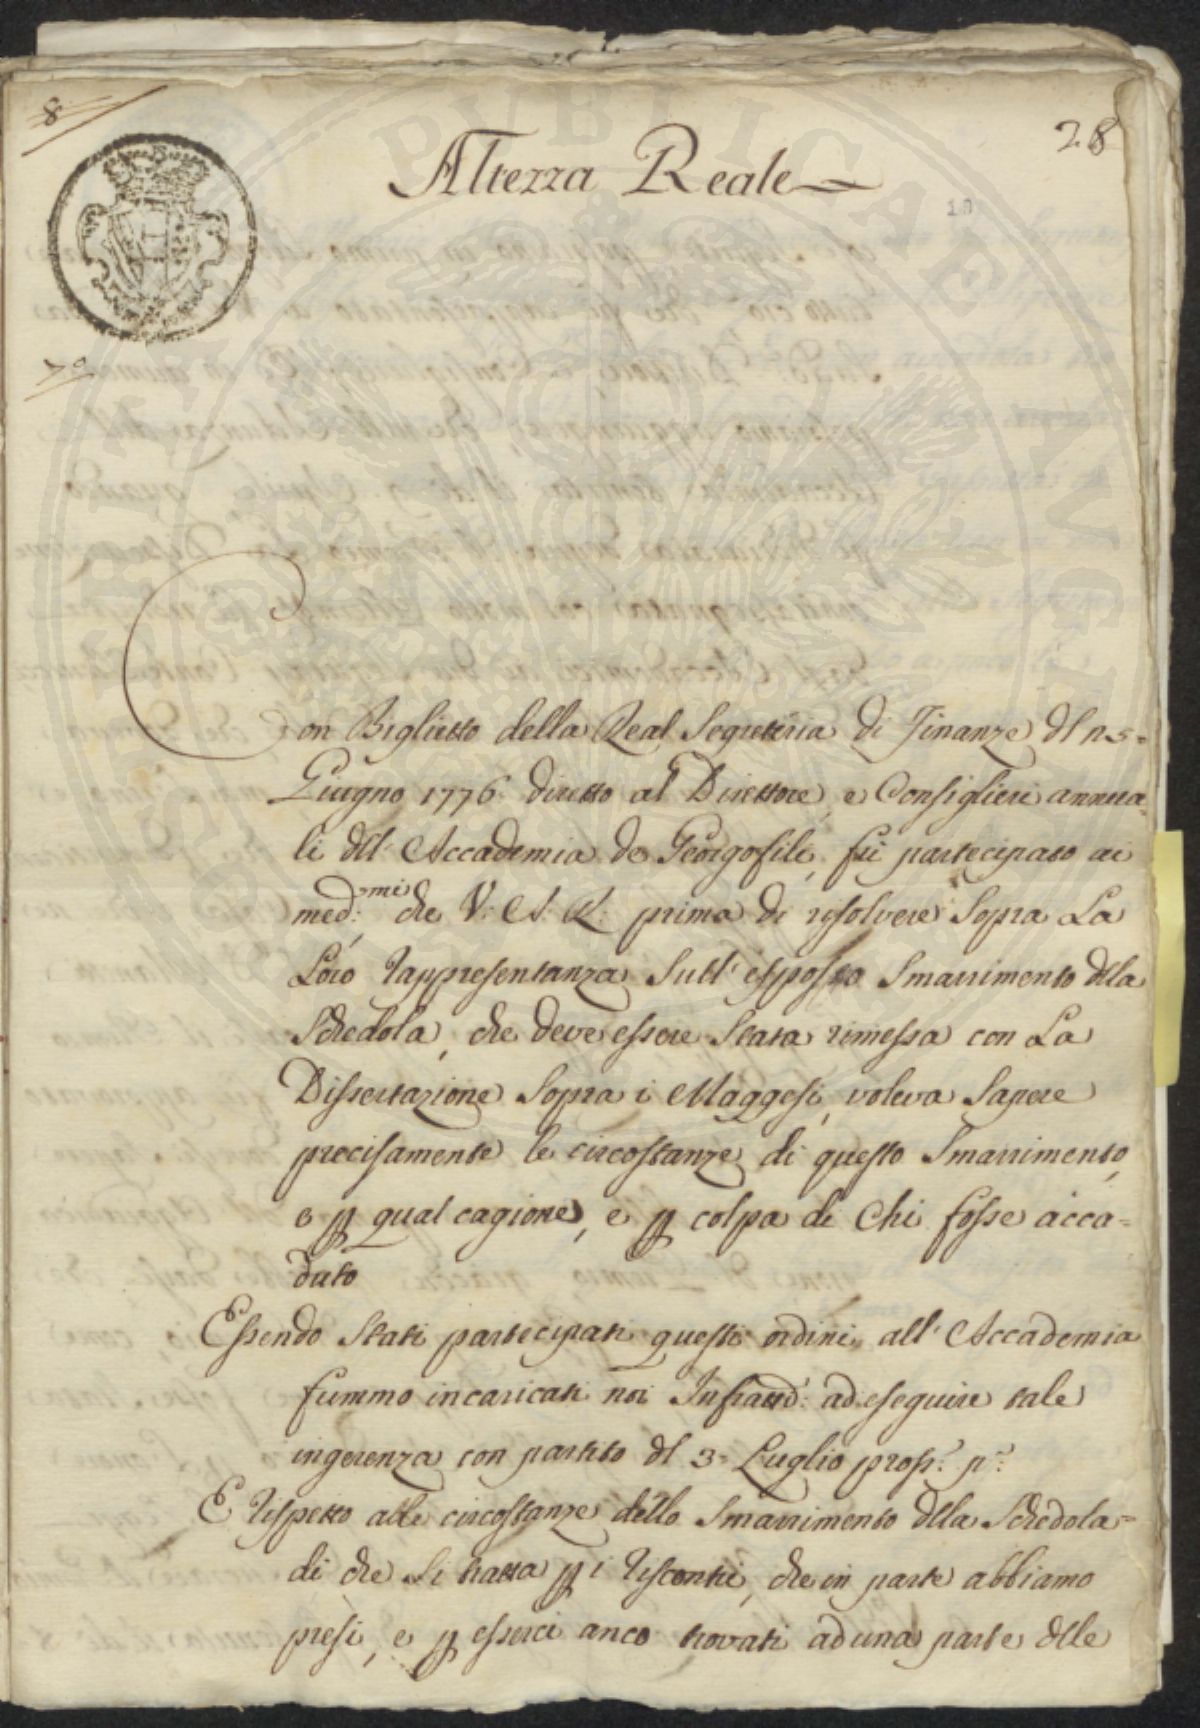 8
28
Altezza Reale
18
7°
Con Biglietto della Real Segreteria di Finanze dl
Giugno 1776 diretto al Direttore, e Consiglieri annua
li dll' Accademia de Georgofili, fù partecipato ai
med:mi che V: A: R: prima di risolvere sopra La
Loro rappresentanza sull' esposto Smarrimento dlla
Schedola, che deve essere stata rimessa con La
Dissertazione sopra i Maggesi, voleva sapere
precisamente le circostanze di questo Smarrimento,
e p qual cagione, e p colpa di Chi fosse acca=
duto
Essendo stati partecipati questi ordini all' Accademia
fummo incaricati noi Infratti: ad eseguire tale
ingerenza con partito dl 3= Luglio pros: p:
E rispetto alle circostanze dello Smarrimento dlla Schedola=
di che si tratta p i riscontri, che in parte abbiamo
presi, e p esserci anco trovati ad una parte dlle